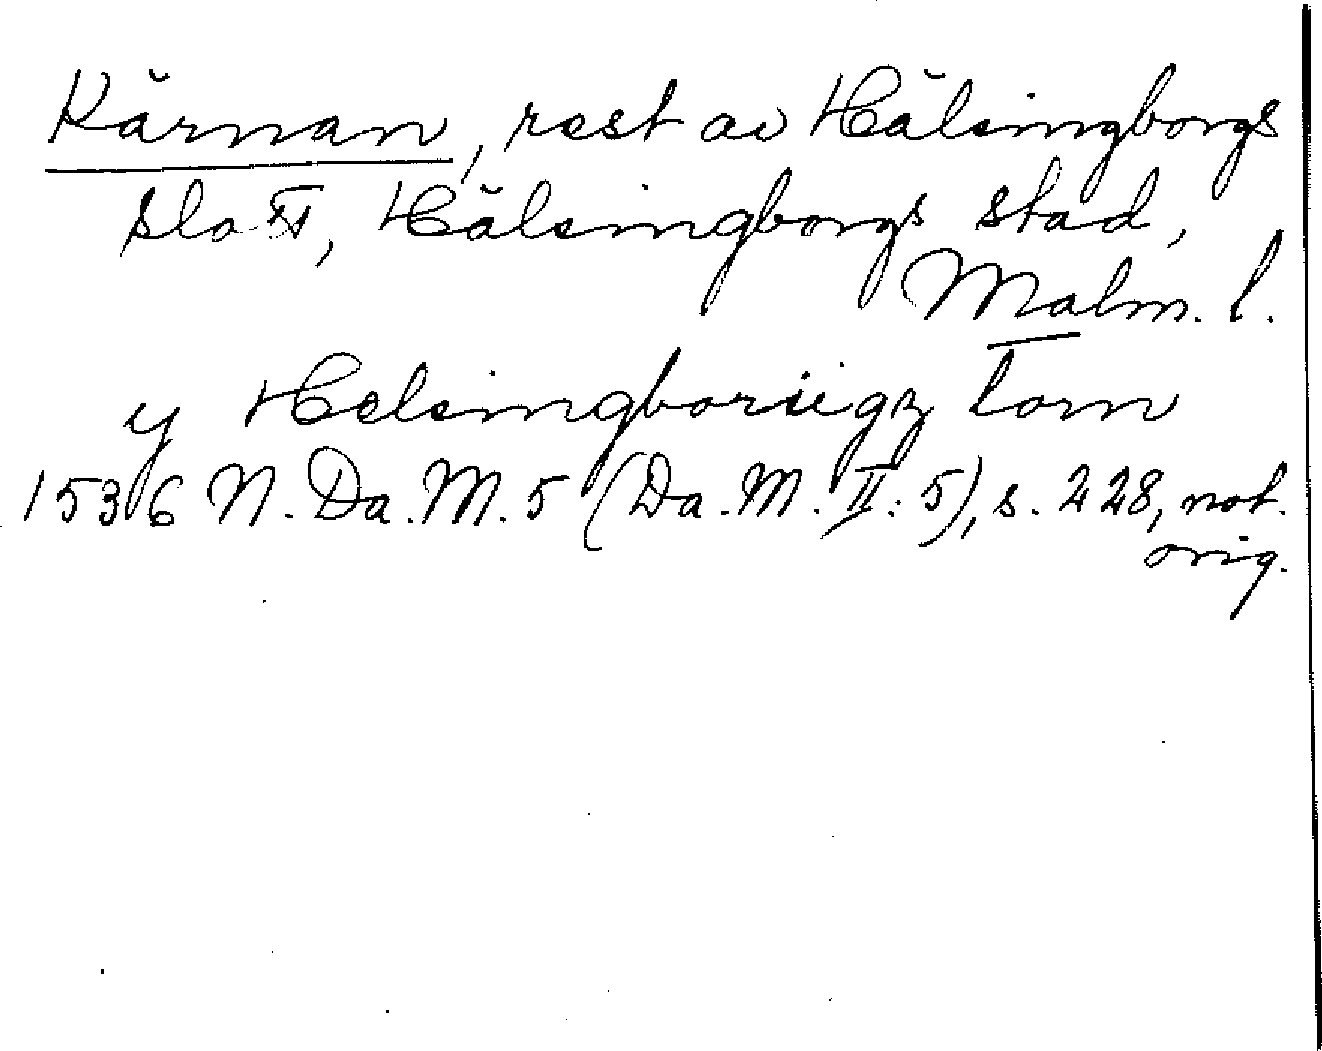 Kärnan, rest av Hälsingborgs
slott, Hälsingborgs stad,
Malm. l.
y Helsingboriigz torn
1536 N. Da. M. 5 (Da. M. II: 5), s. 228, not.
orig.